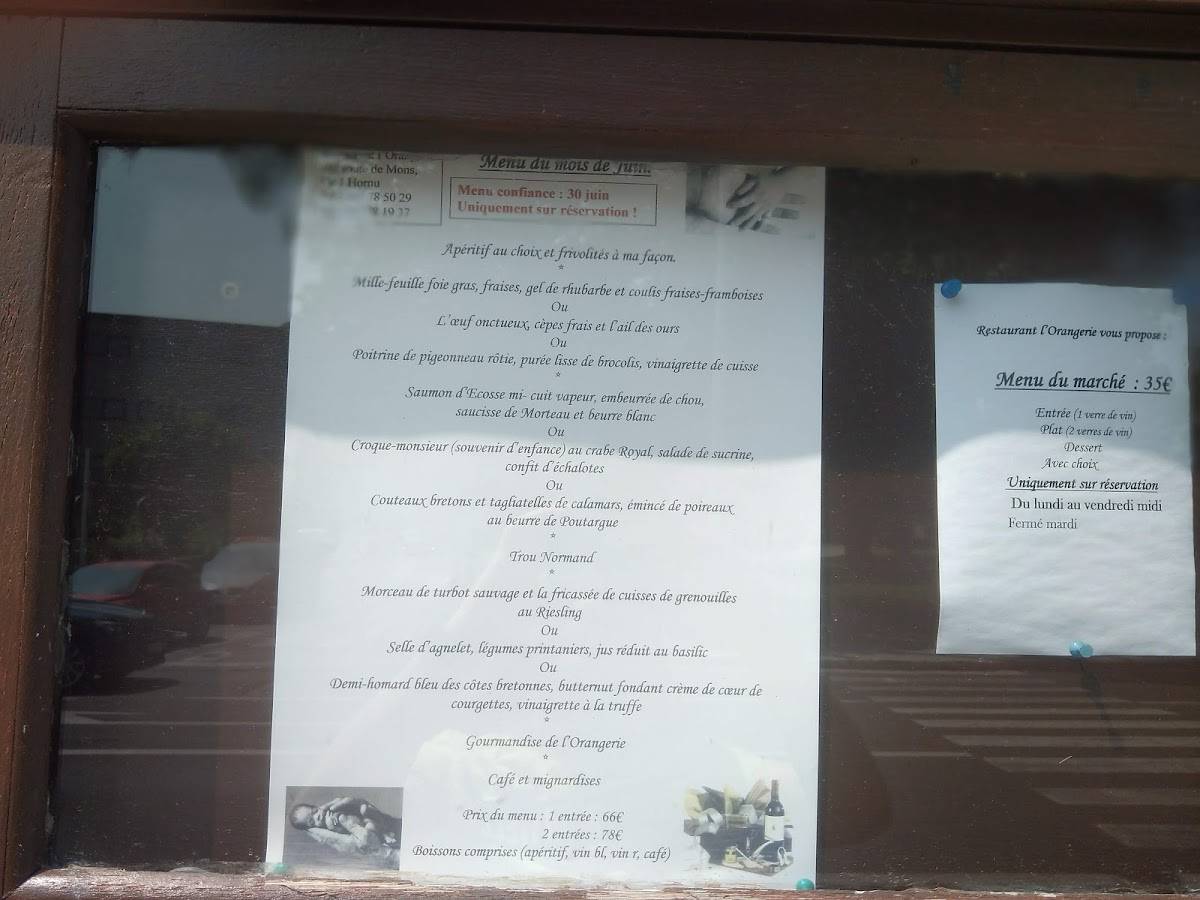 de Mons,
Hornu
78 50 29
19 37
Menu du mois de Juin.
Menu confiance : 30 juin
Uniquement sur réservation !
Apéritif au choix et frivolités à ma façon.
*
Mille-feuille foie gras, fraises, gel de rhubarbe et coulis fraises-framboises
Ou
L'œuf onctueux, cèpes frais et l'ail des ours
Ou
Poitrine de pigeonneau rôtie, purée lisse de brocolis, vinaigrette de cuisse
*
Saumon d'Ecosse mi- cuit vapeur, embeurrée de chou,
saucisse de Morteau et beurre blanc
Ou
Croque-monsieur (souvenir d'enfance) au crabe Royal, salade de sucrine,
confit d'échalotes
Ou
Couteaux bretons et tagliatelles de calamars, émincé de poireaux
au beurre de Poutargue
*
Trou Normand
*
Morceau de turbot sauvage et la fricassée de cuisses de grenouilles
au Riesling
Ou
Selle d'agnelet, légumes printaniers, jus réduit au basilic
Ou
Demi-homard bleu des côtes bretonnes, butternut fondant crème de cœur de
courgettes, vinaigrette à la truffe
*
Gourmandise de l'Orangerie
*
Café et mignardises
Prix du menu : 1 entrée : 66€
2 entrées : 78€
Boissons comprises (apéritif, vin bl, vin r, café)
Restaurant l'Orangerie vous propose :
Menu du marché : 35€
Entrée (1 verre de vin)
Plat (2 verres de vin)
Dessert
Avec choix
Uniquement sur réservation
Du lundi au vendredi midi
Fermé mardi